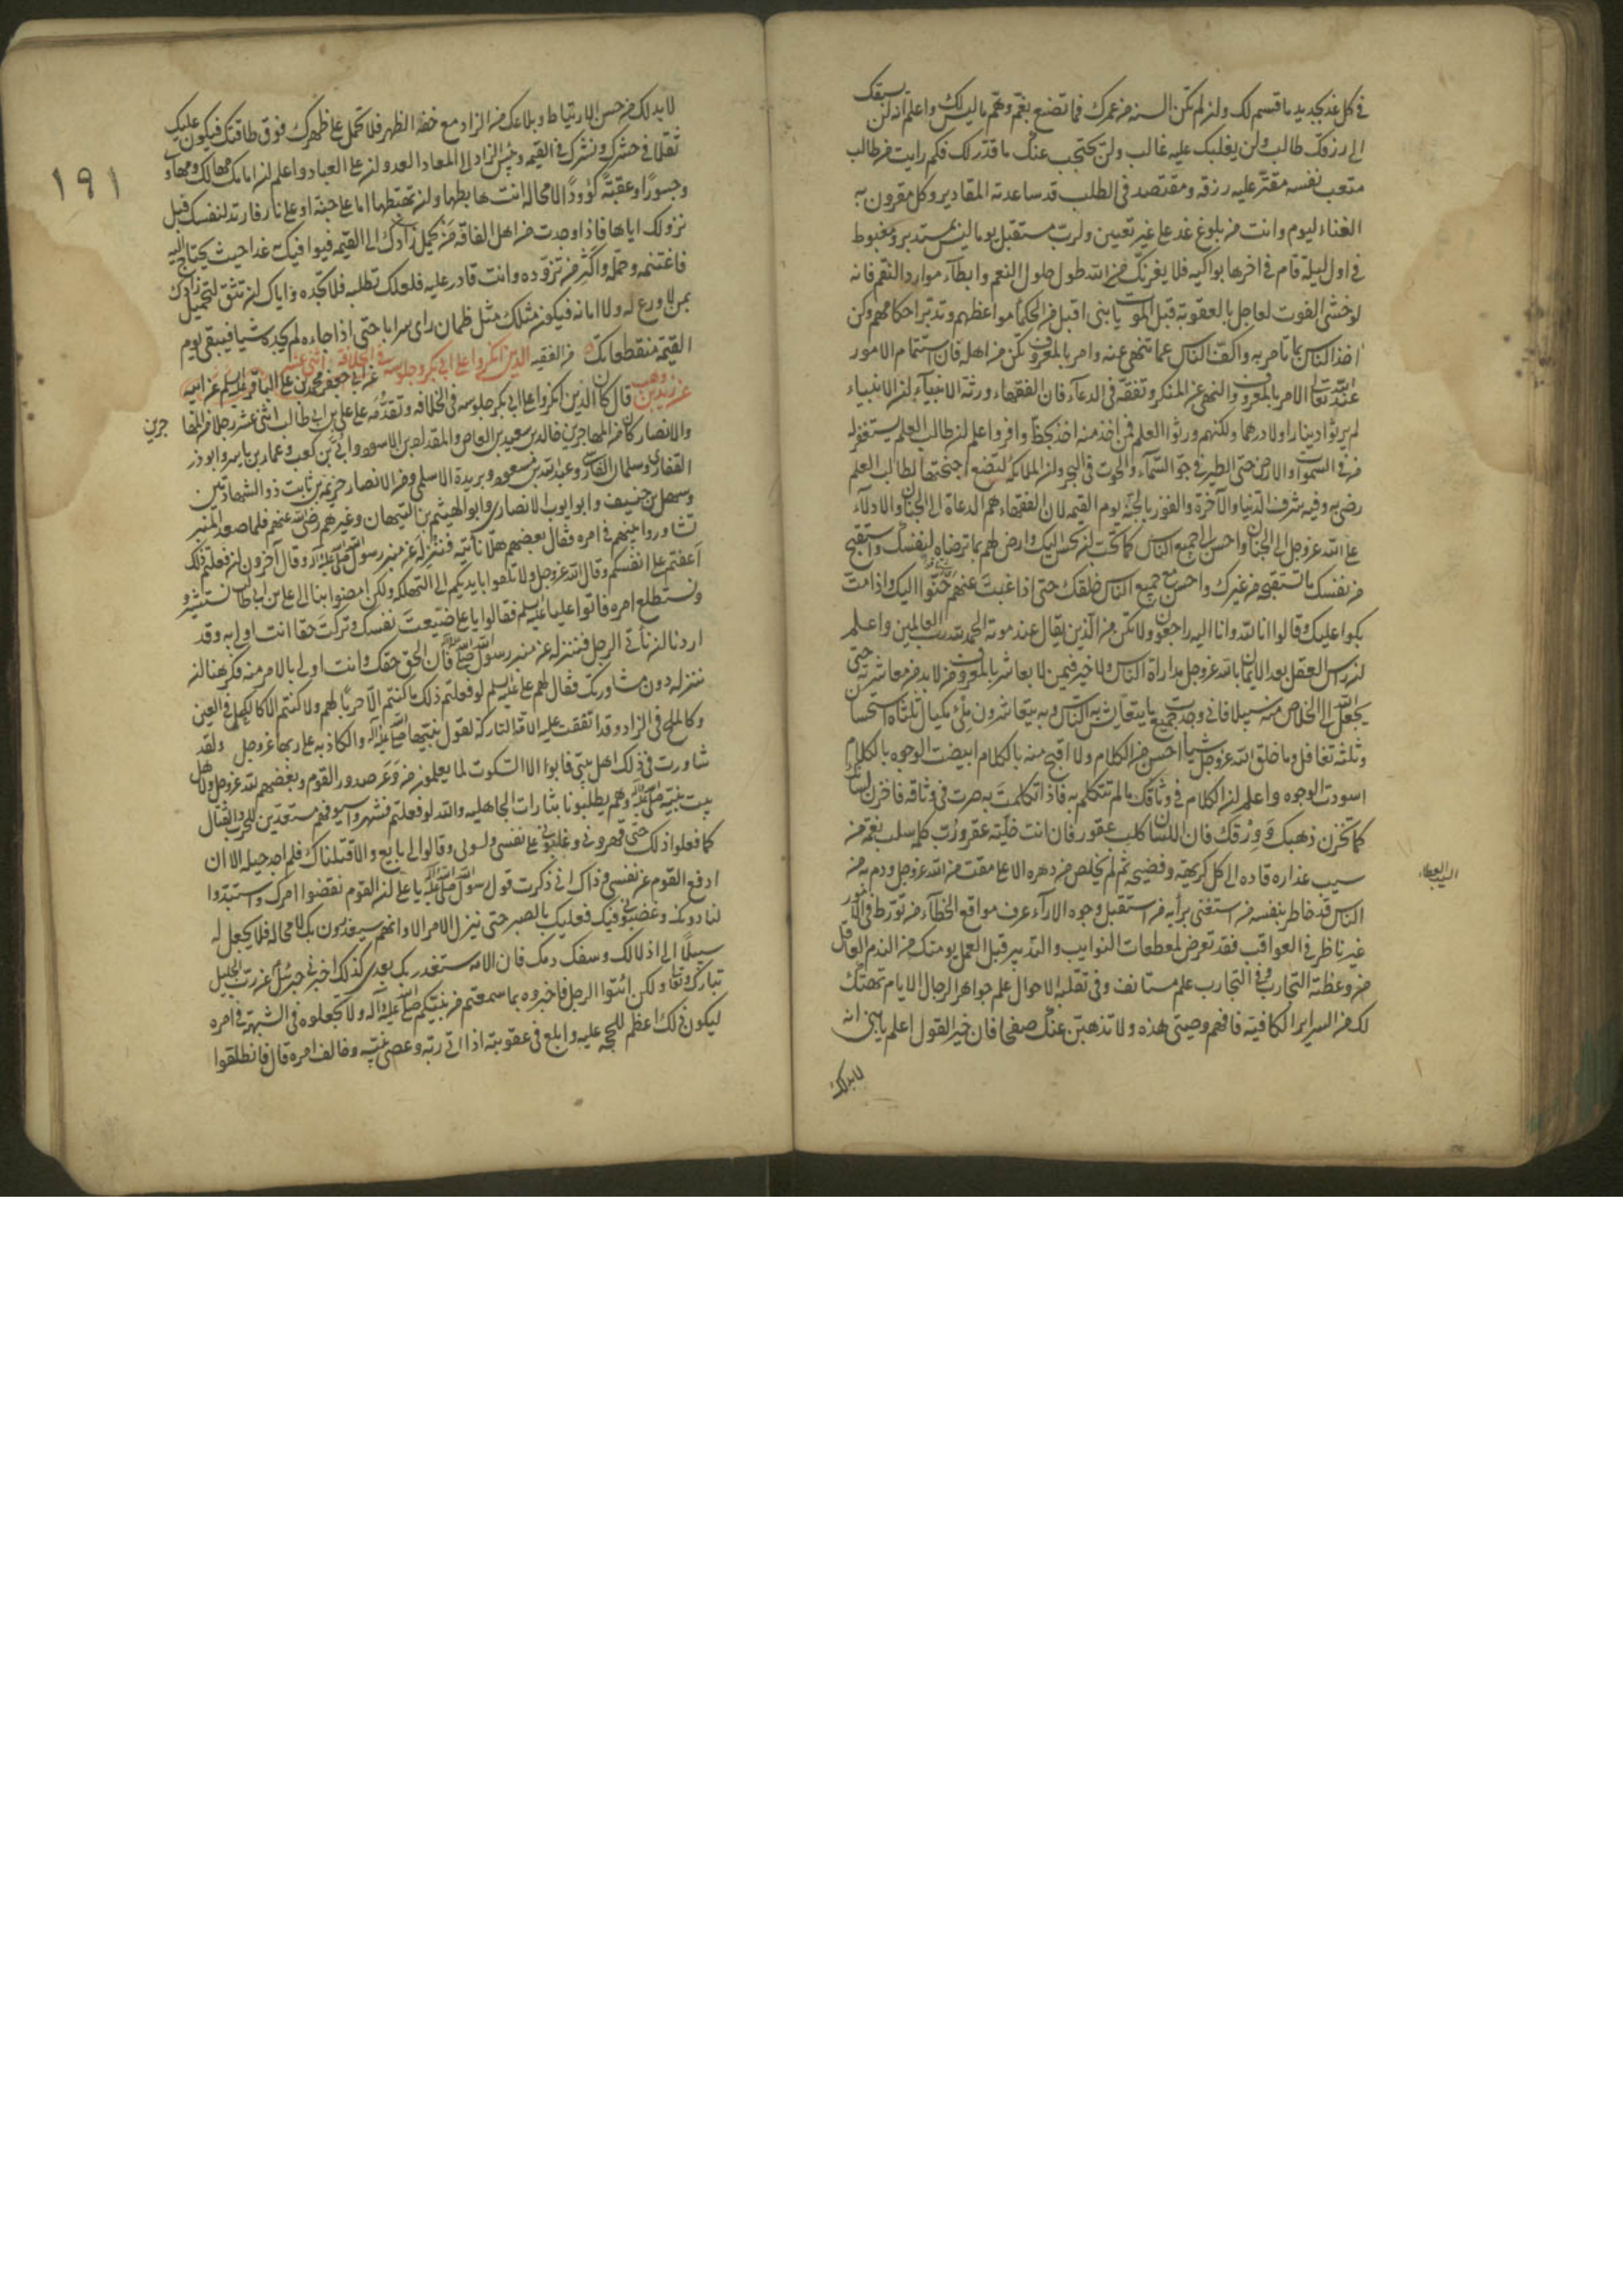 في كل غد بجديد ما قسم لك ولن لم تكن السنة من عمرك فما تصنع بغم وهم ما ليس لك واعلم انه لن يسبقك
الى رزقك طالب ولن يغلبك عليه غالب ولن يحتجب عنك ما قدر لك فكم رايت من طالب
متعب نفسه مقتر عليه رزقه ومقتصد في الطلب قد ساعدته المقادير وكل مقرون به
الفناء اليوم وانت من بلوغ غد على غير تعيين ولرب مستقبل يوما ليس بمستدبر ومغبوط
في اول ليلة قام في اخرها بواكيه فلا يغرنك من الله طول حلول النعم وابطآء موارد النقم فانه
لو خشى الفوت لعاجل بالعقوبة قبل الموت يا بنى اقبل من الحكمآ مواعظهم وتدبر احكامهم وكن
اخذ الناس بما تامر به واكف الناس عما تنهى عنه وامر بالمعروف تكن من اهله فان استتمام الامور
عند الله تعالى الامر بالمعروف والنهى عن المنكر وتفقه في الدعآء فان الفقهاء ورثة الانبيآء لن الانبياء
لم يورثوا دينارا ولا درهما ولكنهم ورثوا العلم فمن اخذ منه اخذ بحظ وافر واعلم لن طالب العلم يستغفر له
من في السموات والارض حتى الطير في جو السمآء والحوت في البحر ولن الملائكة لتضع اجنحتها لطالب العلم
رضى به وفيه شرف الدنيا والآخرة والفوز بالجنة يوم القيمة لان الفقهاء هم الدعاة الى الجنان والادلآء
على الله عز وجل الى الجنان واحسن الى جميع الناس كما تحب لن يحسن اليك وارض لهم بما ترضاه لنفسك واستقبح
من نفسك ما تستقبحه من غيرك واحسن مع جميع الناس خلقك حتى اذا غبت عنهم حنوا اليك واذا مت
بكوا عليك وقالوا انا لله وانا اليه راجعون ولا تكن من الذين يقال عند موته الحمد لله رب العالمين واعلم
لن راس العقل بعد الايمان بالله عز وجل مداراة الناس ولا خير فيمن لا يعاشر بالمعروف من لا بد من معاشرته حتى
يجعل الله الى الخلاص منه سبيلا فاني وجدت جميع ما يتعايش به الناس وبه يتعاشرون ملئ مكيال ثلثاه استحسان
وثلثه تغافل وما خلق الله عز وجل شيئا احسن من الكلام ولا اقبح منه بالكلام ابيضت الوجوه بالكلام
اسودت الوجوه واعلم لن الكلام في وثاقك ما لم تتكلم به فاذا تكلمت به صرت في وثاقه فاخزن لسانك
كما تخزن ذهبك وورقك فان اللسان كلب عقور فان انت خليته عقر ورب كلمة سلبت نعمة من
سيب عذاره قاده الى كل كريهة وفضيحة ثم لم يخلص من دهره الا على مقت من الله عز وجل وذم من
الناس قد خاطر بنفسه من استغنى برأيه من استقبل وجوه الارآء عرف مواقع الخطآء من تورط في الامور
غير ناظر في العواقب فقد تعرض لمفظعات النوايب والتدبير قبل العمل يومنك من الندم العاقل
من وعظته التجارب وفي التجارب علم مستانف وفي تقلب الاحوال علم جواهر الرجال الايام تهتك
لك من السراير الكافية فافهم وصيتى هذه ولا تذهبن عنك صفحا فان خير القول اعلم يا بنى انه
لا بد لك
١٩١
لا بد لك من حسن الارتياط وبلاغك من الزاد مع خفة الظهر فلا تحمل على ظهرك فوق طاقتك فيكون عليك
ثقلا في حشرك ونشرك في القيمة وبئس الزاد الى المعاد العدولن على العباد واعلم لن امامك مهالك ومهاو
وجسورا وعقبة كؤودا لا محالة انت هابطها ولن مهبطها اما على جنة او على نار فارتد لنفسك قبل
نزولك اياها فاذا وجدت من اهل الفاقة من يحمل زادك الى القيمة فيوافيك به غدا حيث تحتاج اليه
فاغتنمه وحمله واكثر من تزوده وانت قادر عليه فلعلك تطلبه فلا تجده واياك لن تثق لتحميل زادك
بمن لا ورع له ولا امانة فيكون مثلك مثل ظمان راى سرابا حتى اذا جاءه لم يجده شيئا فيبقى يوم
القيمة منقطعا بك من الفقيه الذين انكروا على ابى بكر وجلوسه في الخلافة اثنى عشر
عن زيد بن وهب قال كان الذين انكروا على ابى بكر جلوسه في الخلافة وتقدمه على على بن ابى طالب اثنى عشر رجلا من المها
جرين
والانصار كان من المهاجرين خالد بن سعيد بن العاص والمقداد بن الاسود وابى بن كعب وعمار بن ياسر وابو ذر
الغفارى وسلمان الفارسى وعبد الله بن مسعود وبريدة الاسلمى ومن الانصار خزيمة بن ثابت ذو الشهادتين
وسهل بن حنيف وابو ايوب الانصارى وابو الهيثم بن التيهان وغيرهم رضى الله عنهم فلما صعد المنبر
تشاوروا بينهم في امره فقال بعضهم هلا ناتيه فننزله عن منبر رسول الله صلى الله عليه وآله وقال آخرون لن فعلتم ذلك
اعنتم على انفسكم وقال الله عز وجل ولا تلقوا بايديكم الى التهلكة ولكن امضوا بنا الى على بن ابى طالب نستشيره
ونستطلع امره فاتوا عليا عليه السلم فقالوا يا على ضيعت نفسك وتركت حقا انت اولى به وقد
اردنا لن نأتى الرجل فننزله عن منبر رسول الله صلى الله عليه وآله فان الحق حقك وانت اولى بالامر منه فكرهنا لن
ننزله دون مشاورتك فقال لهم على عليه السلم لو فعلتم ذلك ما كنتم الا حربا لهم ولا كنتم الا كالكحل في العين
وكالملح في الزاد وقد اتفقت عليه الامة التاركة لقول نبيها صلى الله عليه وآله والكاذبة على ربها عز وجل ولقد
شاورت في ذلك اهل بيتى فابوا الا السكوت لما يعلمون من وغر صدور القوم وبغضهم لله عز وجل ولاهل
بيت نبيه صلى الله عليه وآله وهم يطلبونا بثارات الجاهلية والله لو فعلتم فشهروا سيوفهم مستعدين للحرب والقتال
كما فعلوا ذلك حتى قهرونى وغلبونى على نفسى ولببونى وقالوا لى بايع والا قتلناك فلم اجد حيلة الا ان
ادفع القوم عن نفسى وذاك انى ذكرت قول رسول الله صلى الله عليه وآله يا على لن القوم نقضوا امرك واستبدوا
بها دونك وعصونى فيك فعليك بالصبر حتى ينزل الامر الا وانهم سيغدرون بك لا محالة فلا تجعل لهم
سبيلا الى اذلالك وسفك دمك فان الامة ستغدر بك بعدى كذلك اخبرنى جبرئيل عن رب الجليل
تبارك وتعالى ولكن ائتوا الرجل فاخبروه بما سمعتم من نبيكم صلى الله عليه وآله ولا تجعلوه في الشبهة في امره
ليكون ذلك اعظم للحجة عليه وابلغ في عقوبته اذا اتى ربه وعصى نبيه وخالف امره قال فانطلقوا